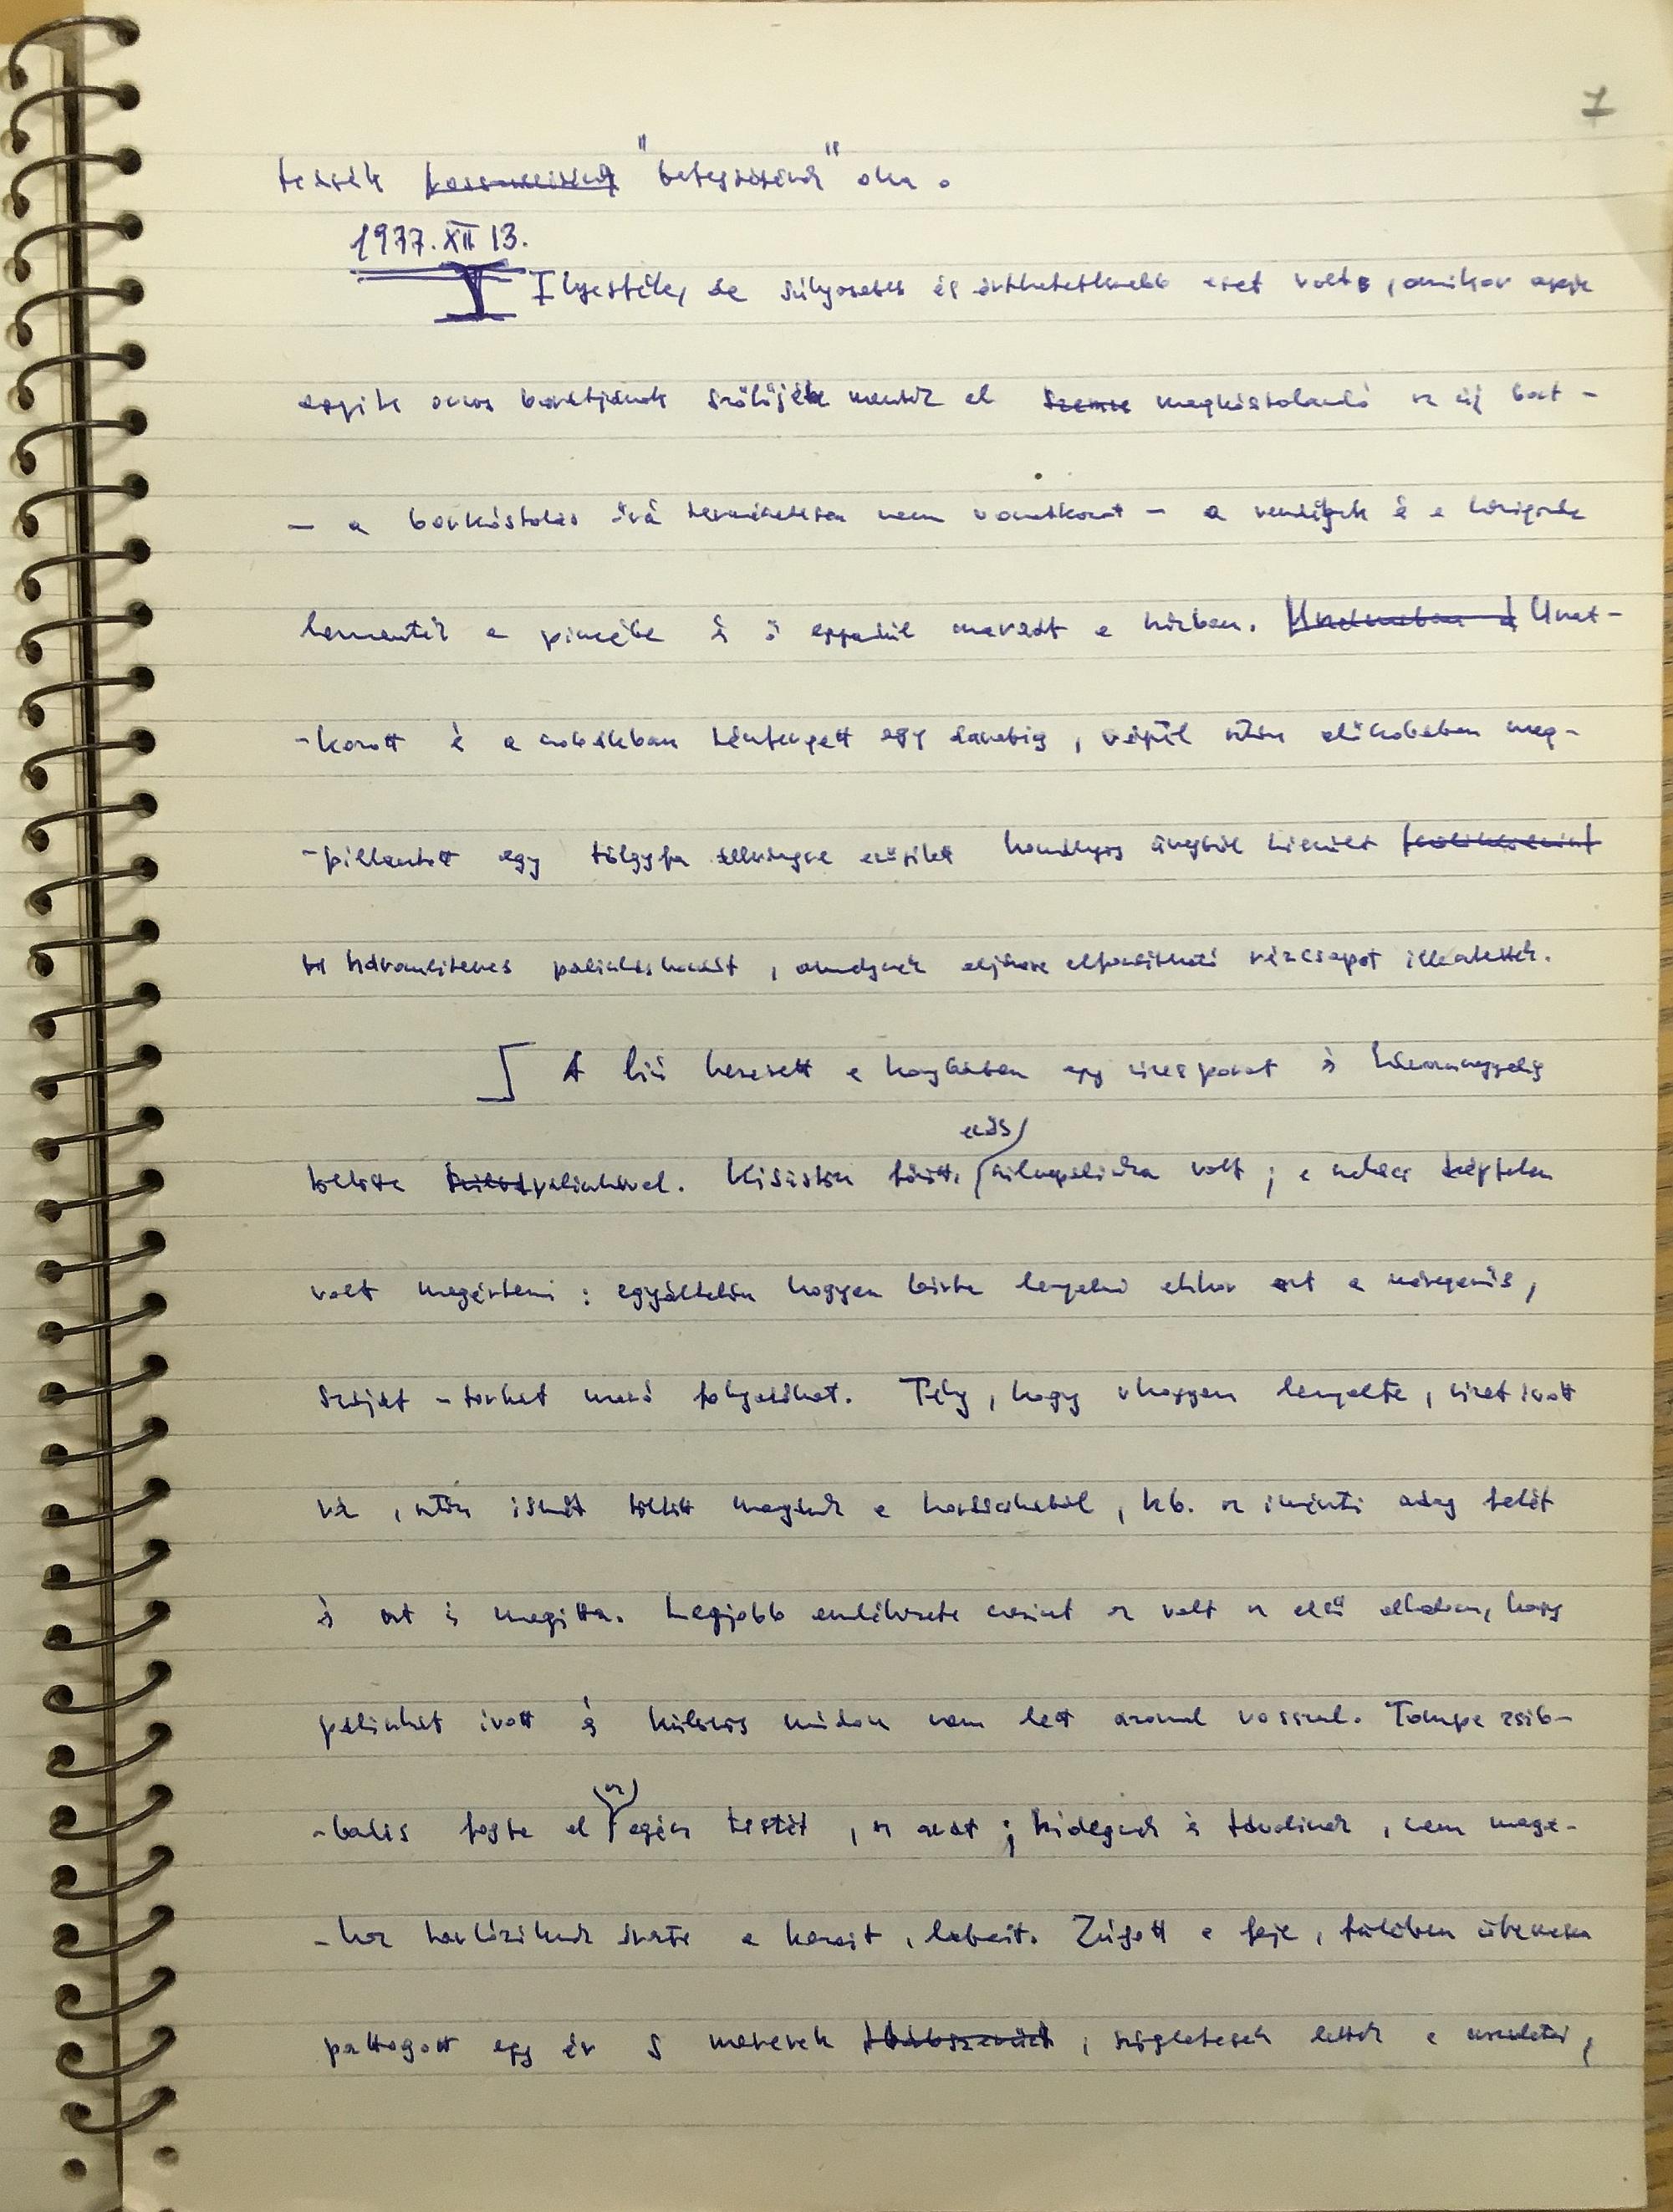 7
"betegségének" oka.
1977. XII 13.
Ilyesféle, de súlyosabb és érthetetlenebb eset volt, amikor apja
egyik orvos barátjának szőlőjébe mentek el megkóstolandó az új bort -
- a borkóstolás őrá természetesen nem vonatkozott - a vendégek és a házigazda
lementek a pincébe és ő egyedül maradt a házban. Unat-
-kozott és a szobákban téntergett egy darabig, végül az előszobában meg-
-pillantott egy tölgyfa állványra erősített homályos üvegből készült
háromliteres pálinkáshordót, amelynek aljára elfordítható rézcsapot illesztettek.
A fiú keresett a konyhában egy üres poharat és háromnegyedig
töltötte pálinkával. Kisüstön főzött, erős szilvapálinka volt; a néhai képtelen
volt megérteni: egyáltalán hogyan bírta lenyelni ekkor ezt a méregerős,
szájat - torkot maró folyadékot. Tény, hogy vhogyan lenyelte, vizet ivott
rá, aztán ismét töltött magának a hordócskából, kb. az iménti adag felét
és azt is megitta. Legjobb emlékezete szerint ez volt az első alkalom, hogy
pálinkát ivott és különös módon nem lett azonnal rosszul. Tompa zsib-
-badás fogta el az egész testét, az arcát; hidegnek és távolinak, nem magá-
-hoz tartozónak érezte a karjait, lábait. Zúgott a feje, fülében ütemesen
pattogott egy ér s merevek, szögletesek lettek a mozdulatai,